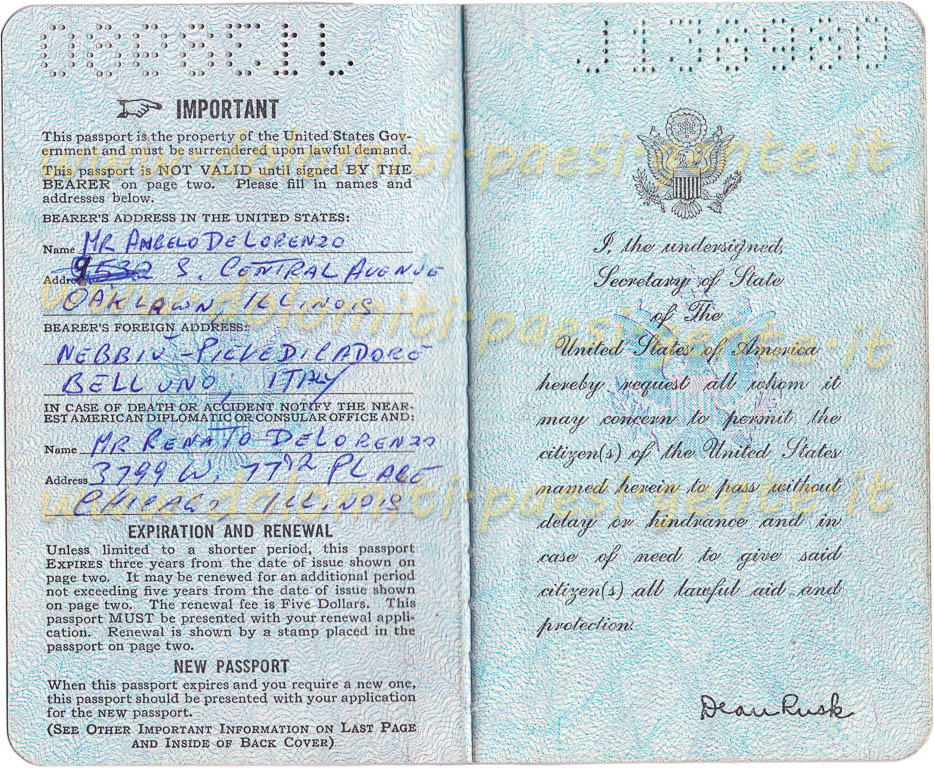 J136980
IMPORTANT
This passport is the property of the United States Gov-
ernment and must be surrendered upon lawful demand.
This passport is NOT VALID until signed BY THE
BEARER on page two. Please fill in names and
addresses below.
BEARER'S ADDRESS IN THE UNITED STATES:
Name MR ANGELO DELORENZO
Address 9532 S. CENTRAL AVENUE
OAKLAWN, ILLINOIS
BEARER'S FOREIGN ADDRESS:
NEBBIÙ-PIEVE DI CADORE
BELLUNO, ITALY
IN CASE OF DEATH OR ACCIDENT NOTIFY THE NEAR-
EST AMERICAN DIPLOMATIC OR CONSULAR OFFICE AND:
Name MR RENATO DELORENZO
Address 3799 W. 77 PLACE
CHICAGO, ILLINOIS
EXPIRATION AND RENEWAL
Unless limited to a shorter period, this passport
EXPIRES three years from the date of issue shown on
page two. It may be renewed for an additional period
not exceeding five years from the date of issue shown
on page two. The renewal fee is Five Dollars. This
passport MUST be presented with your renewal appli-
cation. Renewal is shown by a stamp placed in the
passport on page two.
NEW PASSPORT
When this passport expires and you require a new one,
this passport should be presented with your application
for the NEW passport.
(SEE OTHER IMPORTANT INFORMATION ON LAST PAGE
AND INSIDE OF BACK COVER)
J136980
I, the undersigned,
Secretary of State
of The
United States of America
hereby request all whom it
may concern to permit the
citizen(s) of the United States
named herein to pass without
delay or hindrance and in
case of need to give said
citizen(s) all lawful aid and
protection.
Dean Rusk
www.dolomiti-paesi-gente.it
www.dolomiti-paesi-gente.it
www.dolomiti-paesi-gente.it